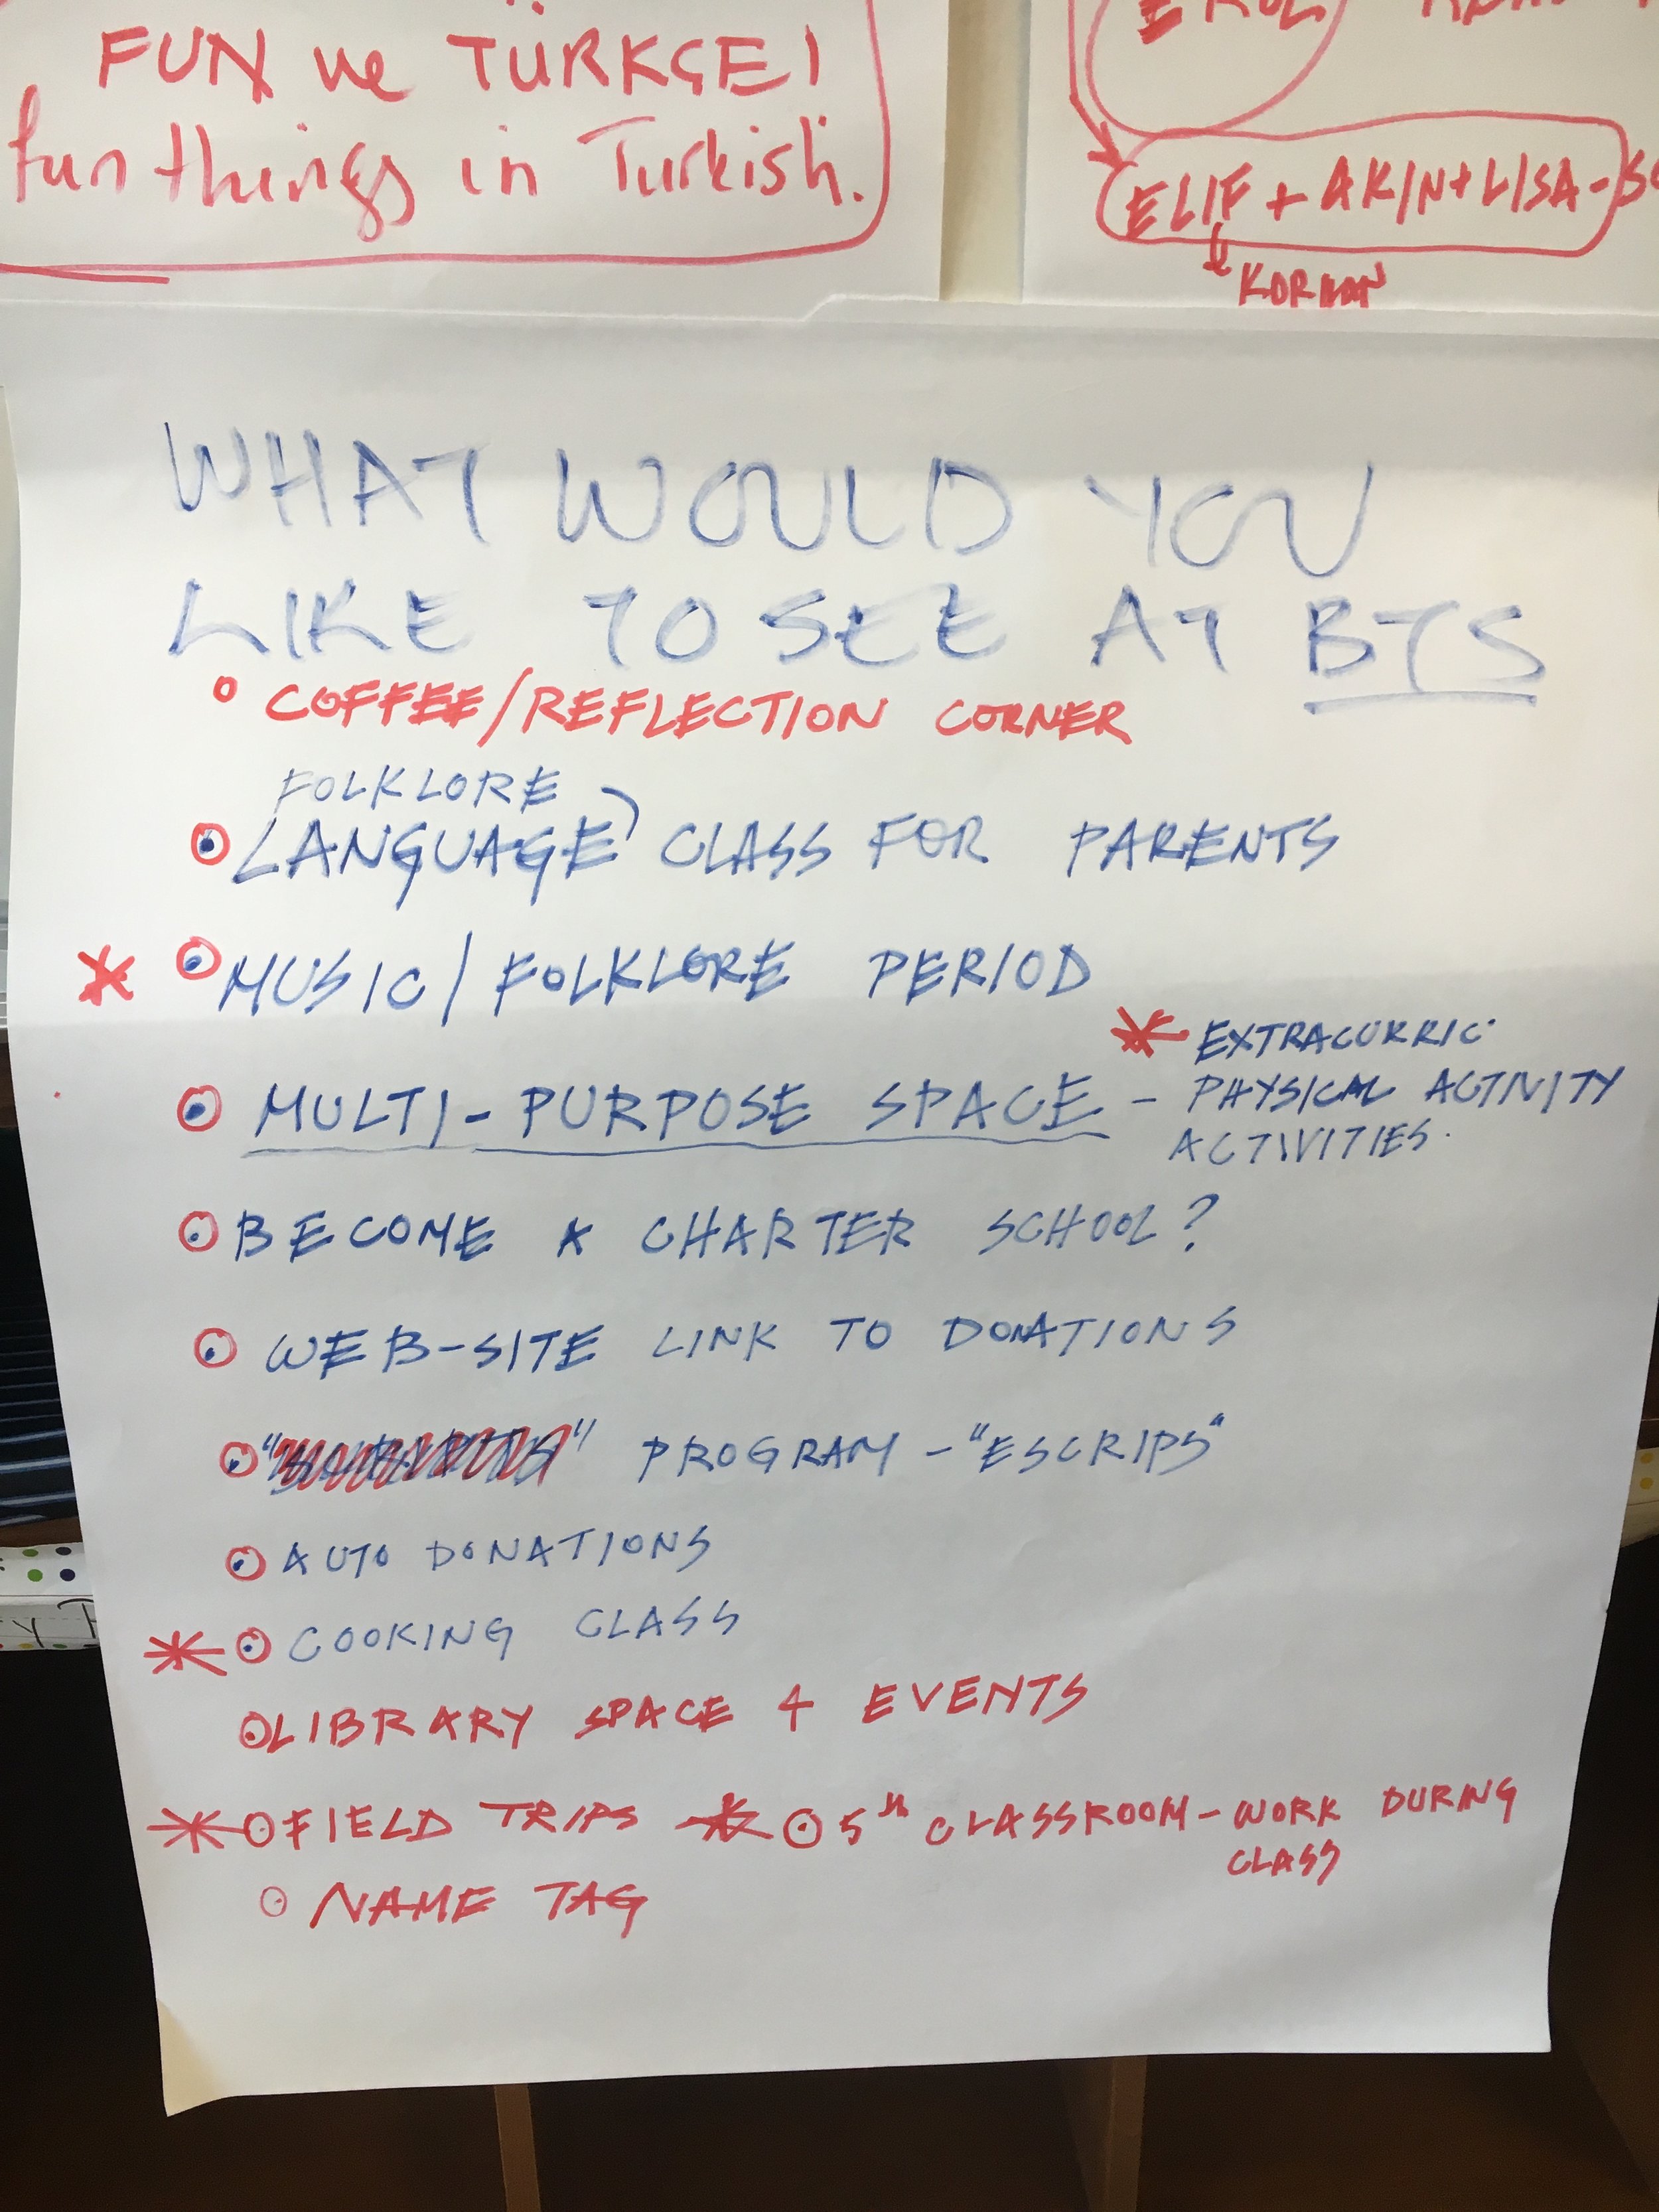 FUN ve TÜRKÇE!
fun things in Turkish.
ELIF + AKIN + LISA -
WHAT WOULD YOU
LIKE TO SEE AT BTS
COFFEE/REFLECTION CORNER
FOLKLORE
LANGUAGE CLASS FOR PARENTS
* MUSIC/FOLKLORE PERIOD
* EXTRACURRIC.
MULTI-PURPOSE SPACE - PHYSICAL ACTIVITY
ACTIVITIES.
BECOME A CHARTER SCHOOL?
WEB-SITE LINK TO DONATIONS
PROGRAM - "ESCRIPS"
AUTO DONATIONS
* COOKING CLASS
LIBRARY SPACE 4 EVENTS
* FIELD TRIPS * 5th CLASSROOM - WORK DURING
CLASS
NAME TAG